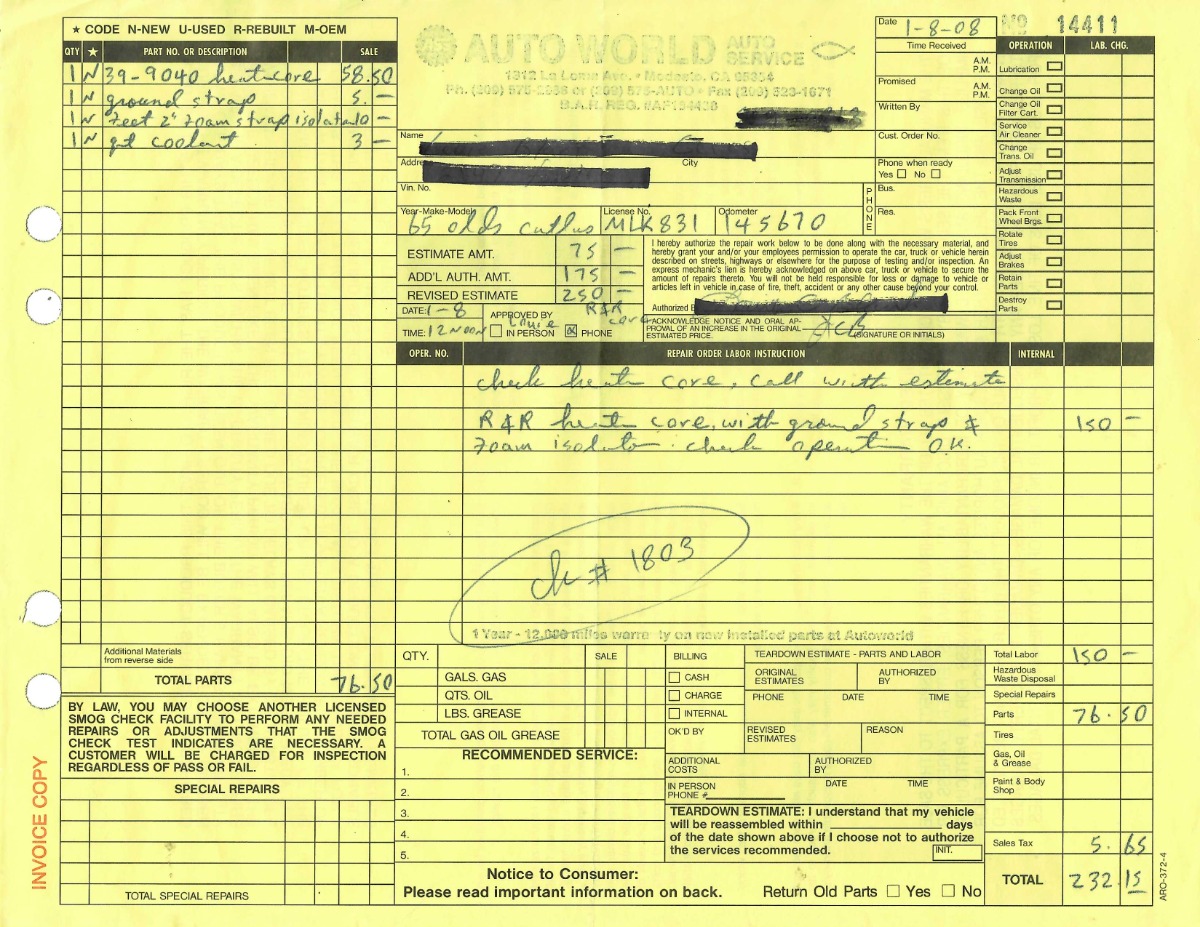 ★ CODE N-NEW U-USED R-REBUILT M-OEM
QTY ★ PART NO. OR DESCRIPTION SALE
1 N 39-9040 heat core 58.50
1 N ground strap 5. —
1 N 7eet 2" foam strap isolat 10 —
1 N qt coolant 3 —
AUTO WORLD AUTO SERVICE
1312 La Loma Ave. • Modesto, CA 95354
Ph. (209) 575-2886 or (209) 575-AUTO • Fax (209) 523-1671
B.A.R. REG. #AF194438
Date 1-8-08
Time Received
A.M.
P.M.
Promised
A.M.
P.M.
Written By
Cust. Order No.
Phone when ready
Yes No
PHONE
Bus.
Res.
Name
Addre
City
Vin. No.
Year-Make-Model 65 olds cutlas
License No. MLK831
Odometer 145670
ESTIMATE AMT. 75 —
ADD'L AUTH. AMT. 175 —
REVISED ESTIMATE 250 —
DATE: 1-8
TIME: 12 NOON
APPROVED BY
IN PERSON PHONE
R&R core
I hereby authorize the repair work below to be done along with the necessary material, and
hereby grant your and/or your employees permission to operate the car, truck or vehicle herein
described on streets, highways or elsewhere for the purpose of testing and/or inspection. An
express mechanic's lien is hereby acknowledged on above car, truck or vehicle to secure the
amount of repairs thereto. You will not be held responsible for loss or damage to vehicle or
articles left in vehicle in case of fire, theft, accident or any other cause beyond your control.
Authorized B
ACKNOWLEDGE NOTICE AND ORAL AP-
PROVAL OF AN INCREASE IN THE ORIGINAL
ESTIMATED PRICE.
JCB
(SIGNATURE OR INITIALS)
No 14411
OPERATION LAB. CHG.
Lubrication
Change Oil
Change Oil Filter Cart.
Service Air Cleaner
Change Trans. Oil
Adjust Transmission
Hazardous Waste
Pack Front Wheel Brgs.
Rotate Tires
Adjust Brakes
Retain Parts
Destroy Parts
OPER. NO. REPAIR ORDER LABOR INSTRUCTION INTERNAL
check heat core, call with estimate
R&R heat core, with ground straps & 150 —
foam isolato. check operation O.K.
ck # 1803
1 Year - 12,000 miles warranty on new installed parts at Autoworld
Additional Materials
from reverse side
TOTAL PARTS 76.50
BY LAW, YOU MAY CHOOSE ANOTHER LICENSED
SMOG CHECK FACILITY TO PERFORM ANY NEEDED
REPAIRS OR ADJUSTMENTS THAT THE SMOG
CHECK TEST INDICATES ARE NECESSARY. A
CUSTOMER WILL BE CHARGED FOR INSPECTION
REGARDLESS OF PASS OR FAIL.
SPECIAL REPAIRS
TOTAL SPECIAL REPAIRS
INVOICE COPY
QTY. SALE
GALS. GAS
QTS. OIL
LBS. GREASE
TOTAL GAS OIL GREASE
RECOMMENDED SERVICE:
1.
2.
3.
4.
5.
BILLING
CASH
CHARGE
INTERNAL
OK'D BY
TEARDOWN ESTIMATE - PARTS AND LABOR
ORIGINAL ESTIMATES
AUTHORIZED BY
PHONE DATE TIME
REVISED ESTIMATES
REASON
ADDITIONAL COSTS
AUTHORIZED BY
IN PERSON
PHONE #
DATE TIME
TEARDOWN ESTIMATE: I understand that my vehicle
will be reassembled within ________ days
of the date shown above if I choose not to authorize
the services recommended.
INIT.
Notice to Consumer:
Please read important information on back.
Return Old Parts Yes No
Total Labor 150 —
Hazardous Waste Disposal
Special Repairs
Parts 76.50
Tires
Gas, Oil & Grease
Paint & Body Shop
Sales Tax 5.65
TOTAL 232.15
ARO-372-4